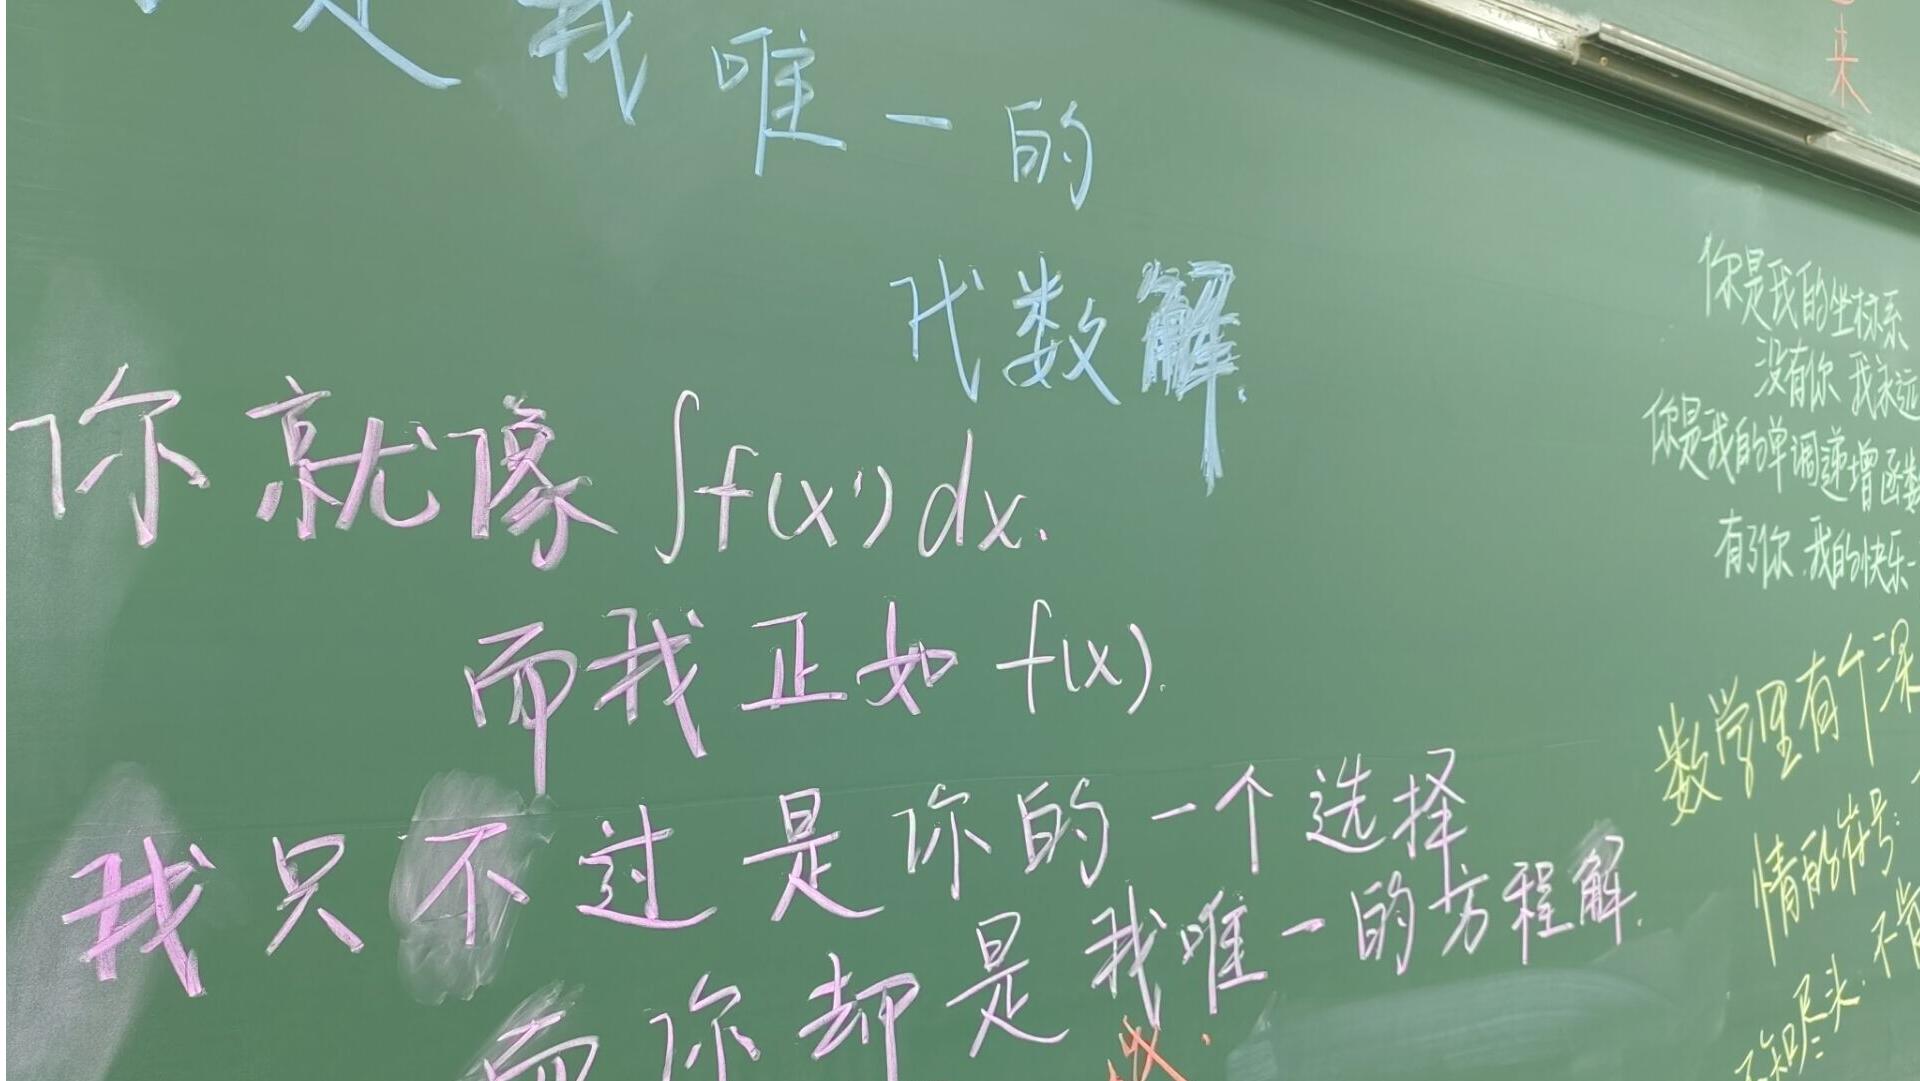 是我唯一的
代数解.
你就像∫f(x')dx.
而我正如f(x).
我只不过是你的一个选择
而你却是我唯一的方程解.
来
你是我的坐标系
没有你 我永远
你是我的单调递增函数
有了你.我的快乐
数学里有个深
情的符号:
不知尽头.不